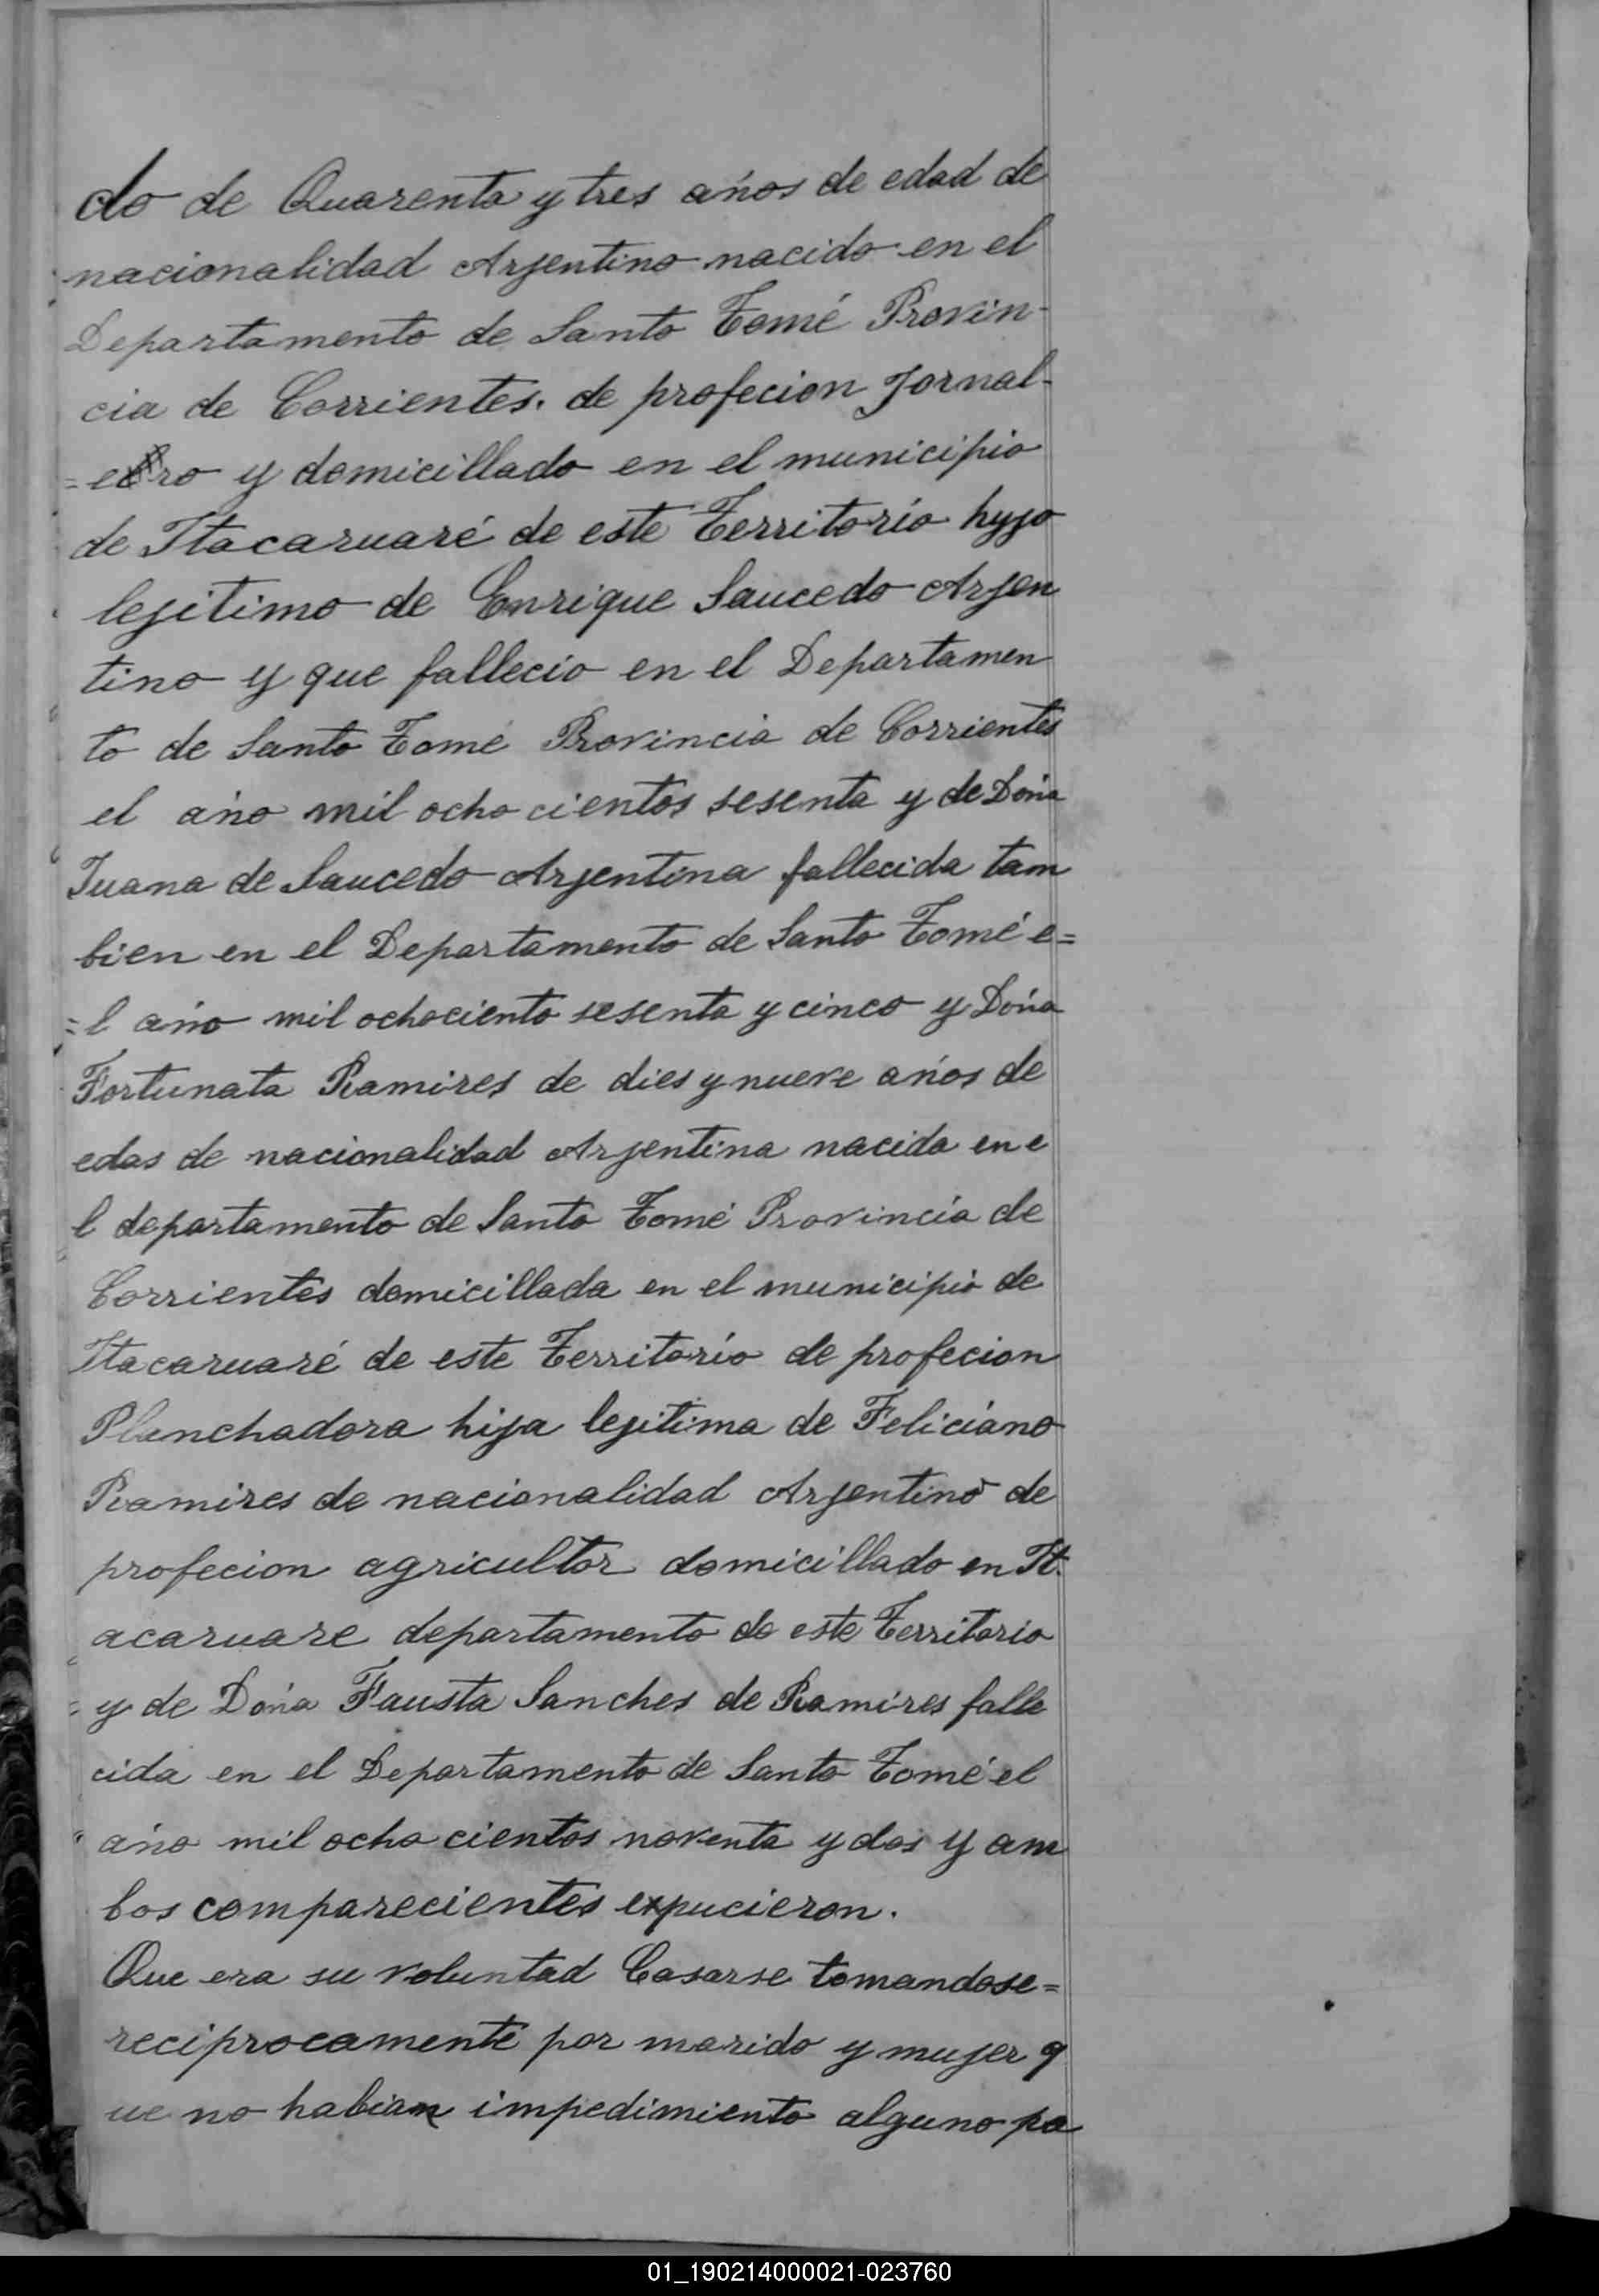 do de Quarenta y tres años de edad de
nacionalidad Argentino nacido en el
Departamento de Santo Tomé Provin-
cia de Corrientes. de profecion Jornal-
=ero y domicillado en el municipio
de Itacaruaré de este Territorio hyjo
legitimo de Enrique Saucedo Argen
tino y que fallecio en el Departamen
to de Santo Tomé Provincia de Corrientes
el año mil ocho cientos sesenta y de Doña
Juana de Saucedo Argentina fallecida tam
bien en el Departamento de Santo Tomé e=
=l año mil ochociento sesenta y cinco y Doña
Fortunata Ramires de dies y nueve años de
edas de nacionalidad Argentina nacida en e
l departamento de Santo Tomé Provincia de
Corrientes domicillada en el municipio de
Itacaruaré de este Territorio de profecion
Planchadora hija legitima de Feliciano
Ramires de nacionalidad Argentino de
profecion agricultor domicillado en It.
acaruare departamento de este Territorio
y de Doña Fausta Sanches de Ramires falle
cida en el Departamento de Santo Tomé el
año mil ocho cientos noventa y dos y am
bos comparecientes expucieron.
Que era su voluntad Casarse tomandose=
reciprocamente por marido y mujer q
ue no habian impedimiento alguno pa
01_190214000021-023760